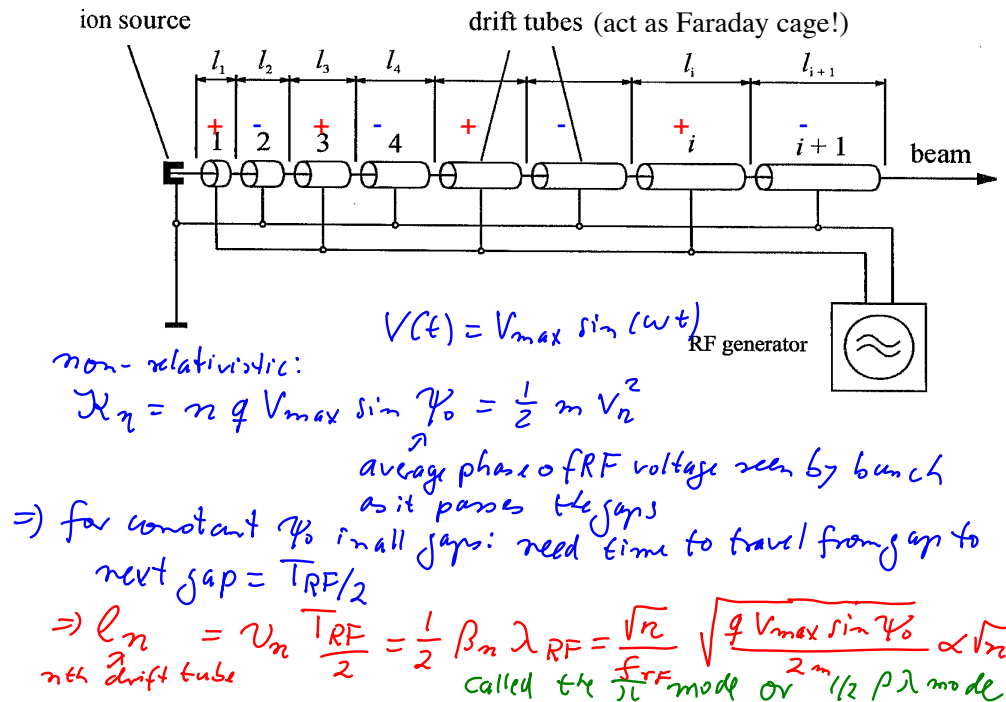 ion source
drift tubes (act as Faraday cage!)
l₁ l₂ l₃ l₄ lᵢ lᵢ₊₁
+ - + - + - + -
1 2 3 4 i i + 1
beam
V(t) = V_max sin(ωt)
RF generator
non-relativistic:
K_n = n q V_max sin Ψ₀ = 1/2 m v_n²
↑
average phase of RF voltage seen by bunch
as it passes the gaps
=) for constant Ψ₀ in all gaps: need time to travel from gap to
next gap = T_RF/2
=) l_n = v_n T_RF/2 = 1/2 β_n λ_RF = √n/f_RF √(q V_max sin Ψ₀/2m) ∝ √n
nth drift tube
called the π mode or 1/2 βλ mode